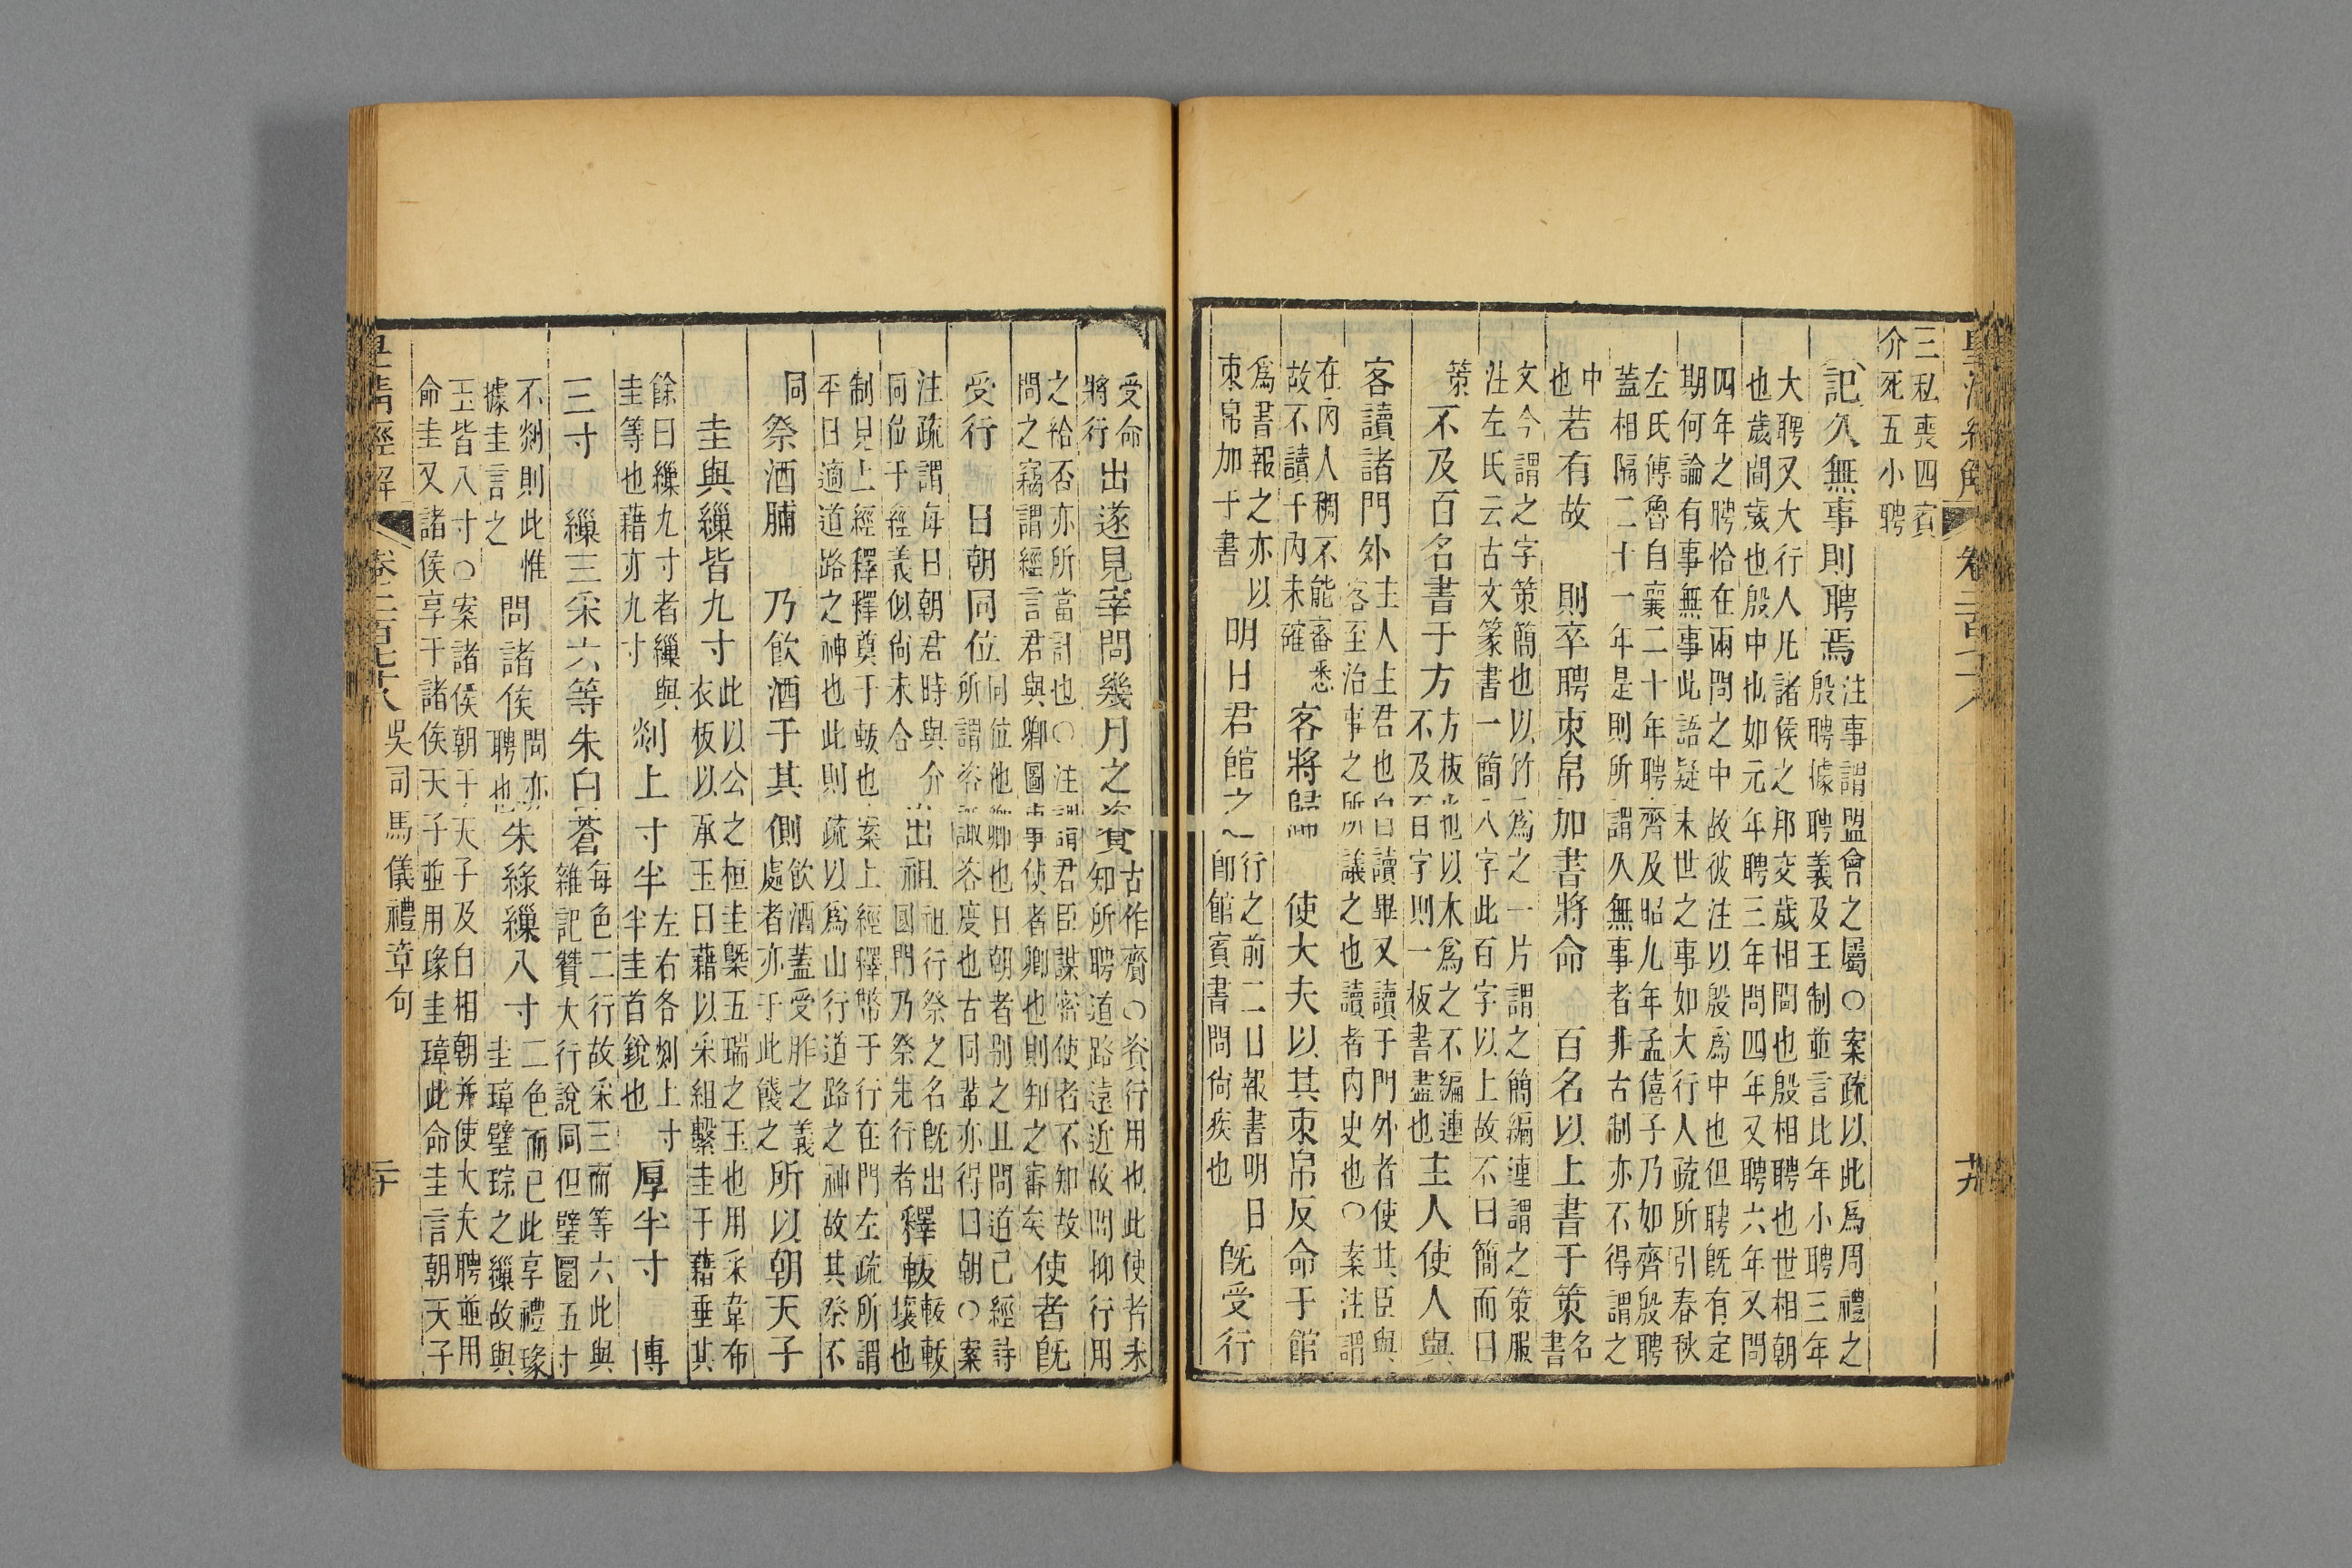 皇清經解 卷二百七十八 十九
三私喪四賓
介死五小聘
記久無事則聘焉
注事謂盟會之屬○案疏以此爲周禮之
殷聘據聘義及王制並言比年小聘三年
大聘又大行人凡諸侯之邦交歲相問也殷相聘也世相朝
也歲間歲也殷中也如元年聘三年問四年又聘六年又問
四年之聘恰在兩問之中故彼注以殷爲中也但聘旣有定
期何論有事無事此語疑末世之事如大行人疏所引春秋
左氏傳魯自襄二十年聘齊及昭九年孟僖子乃如齊殷聘
蓋相隔二十一年是則所謂久無事者非古制亦不得謂之
中
也
若有故 則卒聘束帛加書將命 百名以上書于策
名
書
文今謂之字策簡也以竹爲之一片謂之簡編連謂之策服
注左氏云古文篆書一簡八字此百字以上故不曰簡而曰
策
不及百名書于方
方板也以木爲之不編連
不及百字則一板書盡也
主人使人與
客讀諸門外
主人主君也自讀畢又讀于門外者使其臣與
客至治事之所所議之也讀者內史也○案注謂
在內人稠不能審悉
故不讀于內未確
客將歸 使大夫以其束帛反命于館
爲書報之亦以
束帛加于書
明日君館之
行之前二日報書明日
卽館賓書問尚疾也
旣受行
受命
將行
出遂見宰問幾月之資
古作齎○資行用也此使者未
知所聘道路遠近故問抑行用
之給否亦所當計也○注謂君臣謀密使者不知故
問之竊謂經言君與卿圖事使者卿也則知之審矣
使者旣
受行 日朝同位
同位他卿也日朝者别之且問道已經詩
所謂咨諏咨度也古同輩亦得曰朝○案
注疏謂每日朝君時與介
同位于經義似尚未合
出祖
祖行祭之名旣出
國門乃祭先行者
釋軷
軷軷
壤也
制見上經釋釋奠于軷也案上經釋幣于行在門左疏所謂
平日適道路之神也此則疏以爲山行道路之神故其祭不
同
祭酒脯 乃飮酒于其側
飮酒蓋受胙之義
處者亦于此餞之
所以朝天子
圭與繅皆九寸
此以公之桓圭槩五瑞之玉也用采韋布
衣板以承玉曰藉以采組繫圭于藉垂其
餘曰繅九寸者繅與
圭等也藉亦九寸
剡上寸半
左右各剡上寸
半圭首銳也
厚半寸 博
三寸 繅三采六等朱白蒼
每色二行故采三而等六此與
雜記贊大行說同但璧圜五寸
不剡則此惟
據圭言之
問諸侯
問亦
聘也
朱綠繅八寸
二色而已此享禮瑑
圭璋璧琮之繅故與
玉皆八寸○案諸侯朝于天子及自相朝並使大夫聘並用
命圭又諸侯享于諸侯天子並用瑑圭璋此命圭言朝天子
皇清經解 卷二百七十八 吳司馬儀禮章句 二十